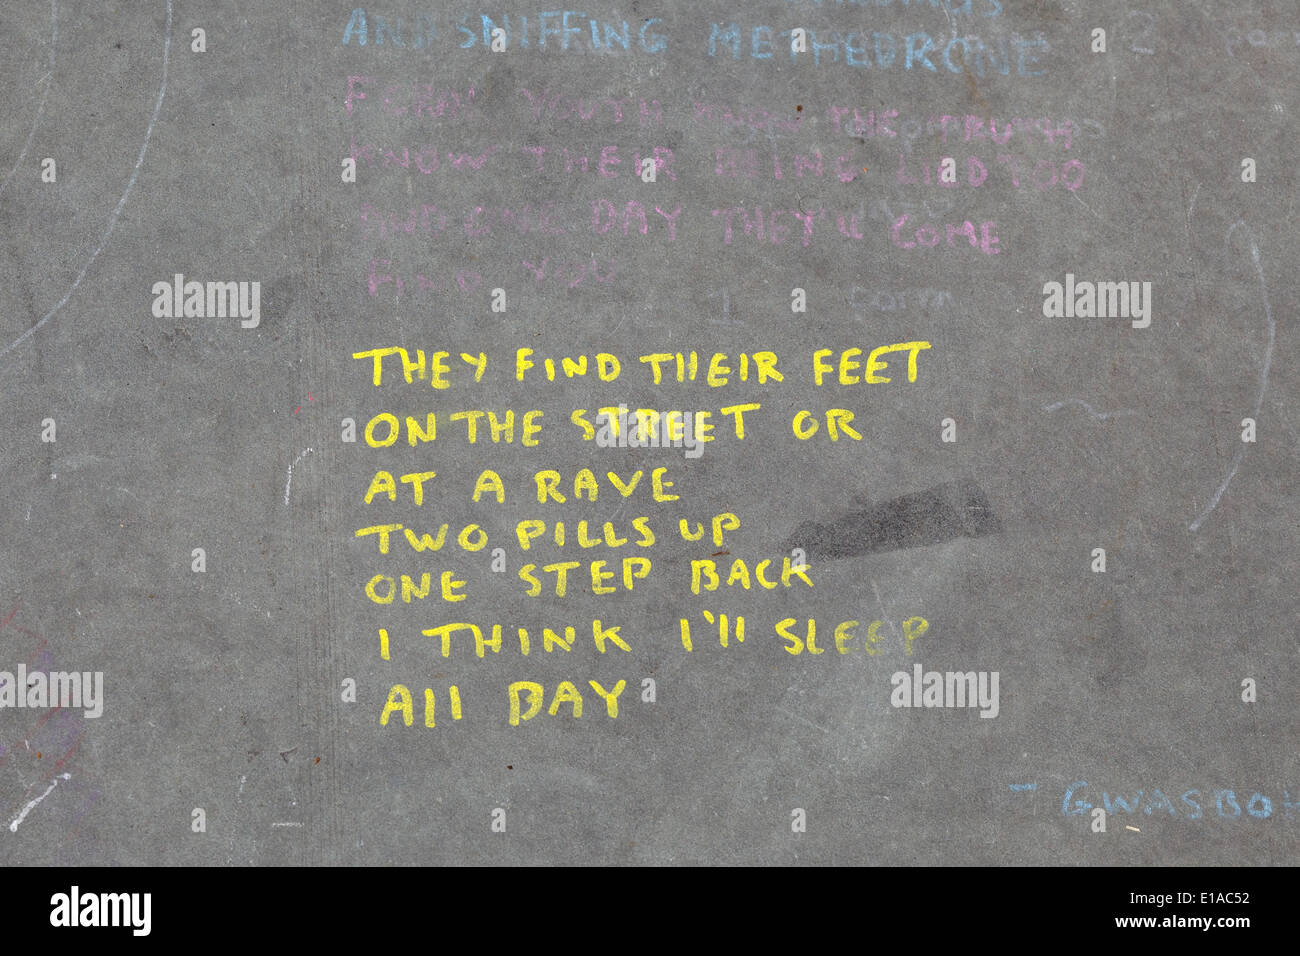 AND SNIFFING METHEDRONE
YOUTH KNOW THE TRUTH
KNOW THEIR BEING LIED TOO
AND ONE DAY THEY'll COME
FIND YOU
THEY FIND THEIR FEET
ON THE STREET OR
AT A RAVE
TWO PILLS UP
ONE STEP BACK
I THINK I'll SLEEP
All DAY
- GWASBO
alamy
alamy
www.alamy.com
Image ID: E1AC52